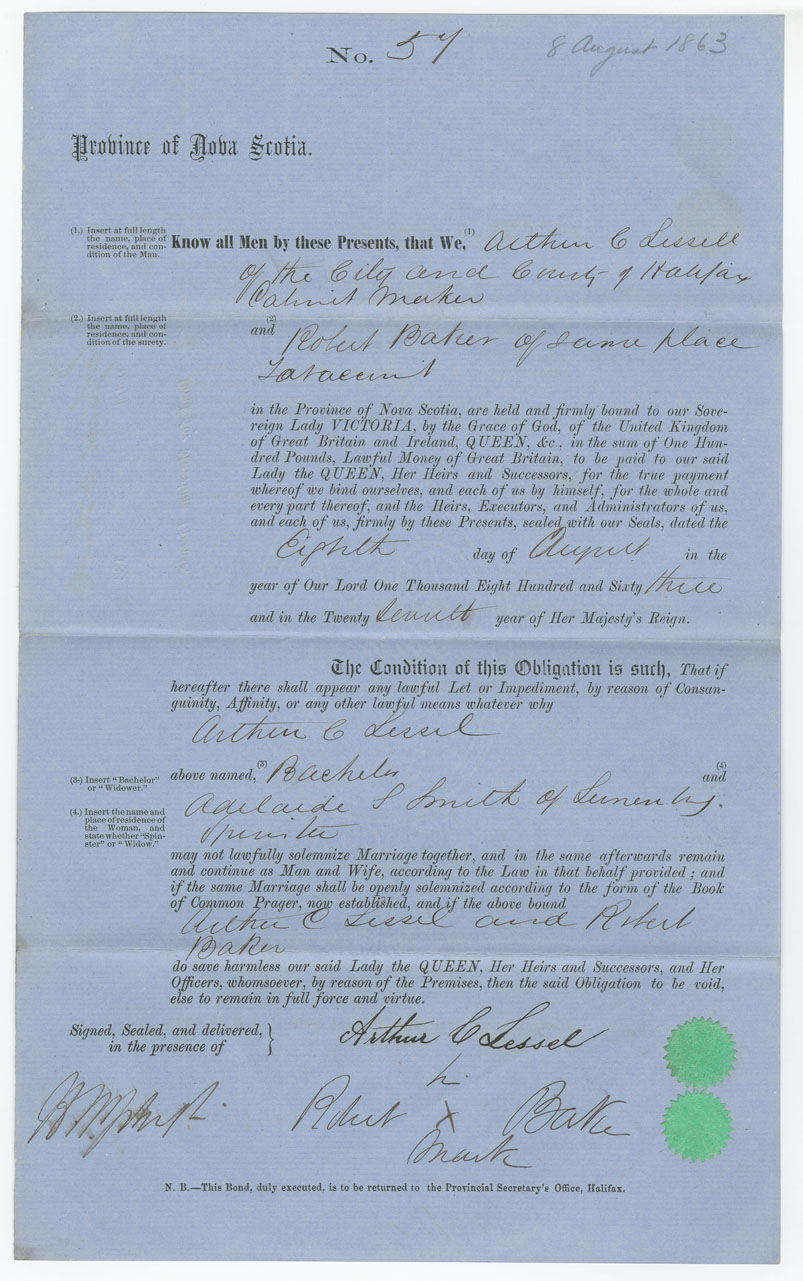 No. 57
8 August 1863
Province of Nova Scotia.
(1.) Insert at full length
the name, place of
residence, and con-
dition of the Man.
Know all Men by these Presents, that We,(1) Arthur C Lessell
of the City and County of Halifax
Cabinet Maker
(2.) Insert at full length
the name, place of
residence, and con-
dition of the surety.
(2)
and Robert Baker of same place
in the Province of Nova Scotia, are held and firmly bound to our Sove-
reign Lady VICTORIA, by the Grace of God, of the United Kingdom
of Great Britain and Ireland, QUEEN, &c., in the sum of One Hun-
dred Pounds, Lawful Money of Great Britain, to be paid to our said
Lady the QUEEN, Her Heirs and Successors, for the true payment
whereof we bind ourselves, and each of us by himself, for the whole and
every part thereof, and the Heirs, Executors, and Administrators of us,
and each of us, firmly by these Presents, sealed with our Seals, dated the
Eighth day of August in the
year of Our Lord One Thousand Eight Hundred and Sixty three
and in the Twenty year of Her Majesty's Reign.
The Condition of this Obligation is such, That if
hereafter there shall appear any lawful Let or Impediment, by reason of Consan-
guinity, Affinity, or any other lawful means whatever why
Arthur C Lessel
(3.) Insert "Bachelor"
or "Widower."
above named,(3) Bachelor (4) and
(4.) Insert the name and
place of residence of
the Woman, and
state whether "Spin-
ster" or "Widow."
Adelaide S Smith of Lunenburg.
Spinster
may not lawfully solemnize Marriage together, and in the same afterwards remain
and continue as Man and Wife, according to the Law in that behalf provided ; and
if the same Marriage shall be openly solemnized according to the form of the Book
of Common Prager, now established, and if the above bound
Arthur C Lessel and Robert
Baker
do save harmless our said Lady the QUEEN, Her Heirs and Successors, and Her
Officers, whomsoever, by reason of the Premises, then the said Obligation to be void,
else to remain in full force and virtue.
Signed, Sealed, and delivered, }
in the presence of
Arthur C Lessel
Robert x Baker
Mark
N. B.—This Bond, duly executed, is to be returned to the Provincial Secretary's Office, Halifax.